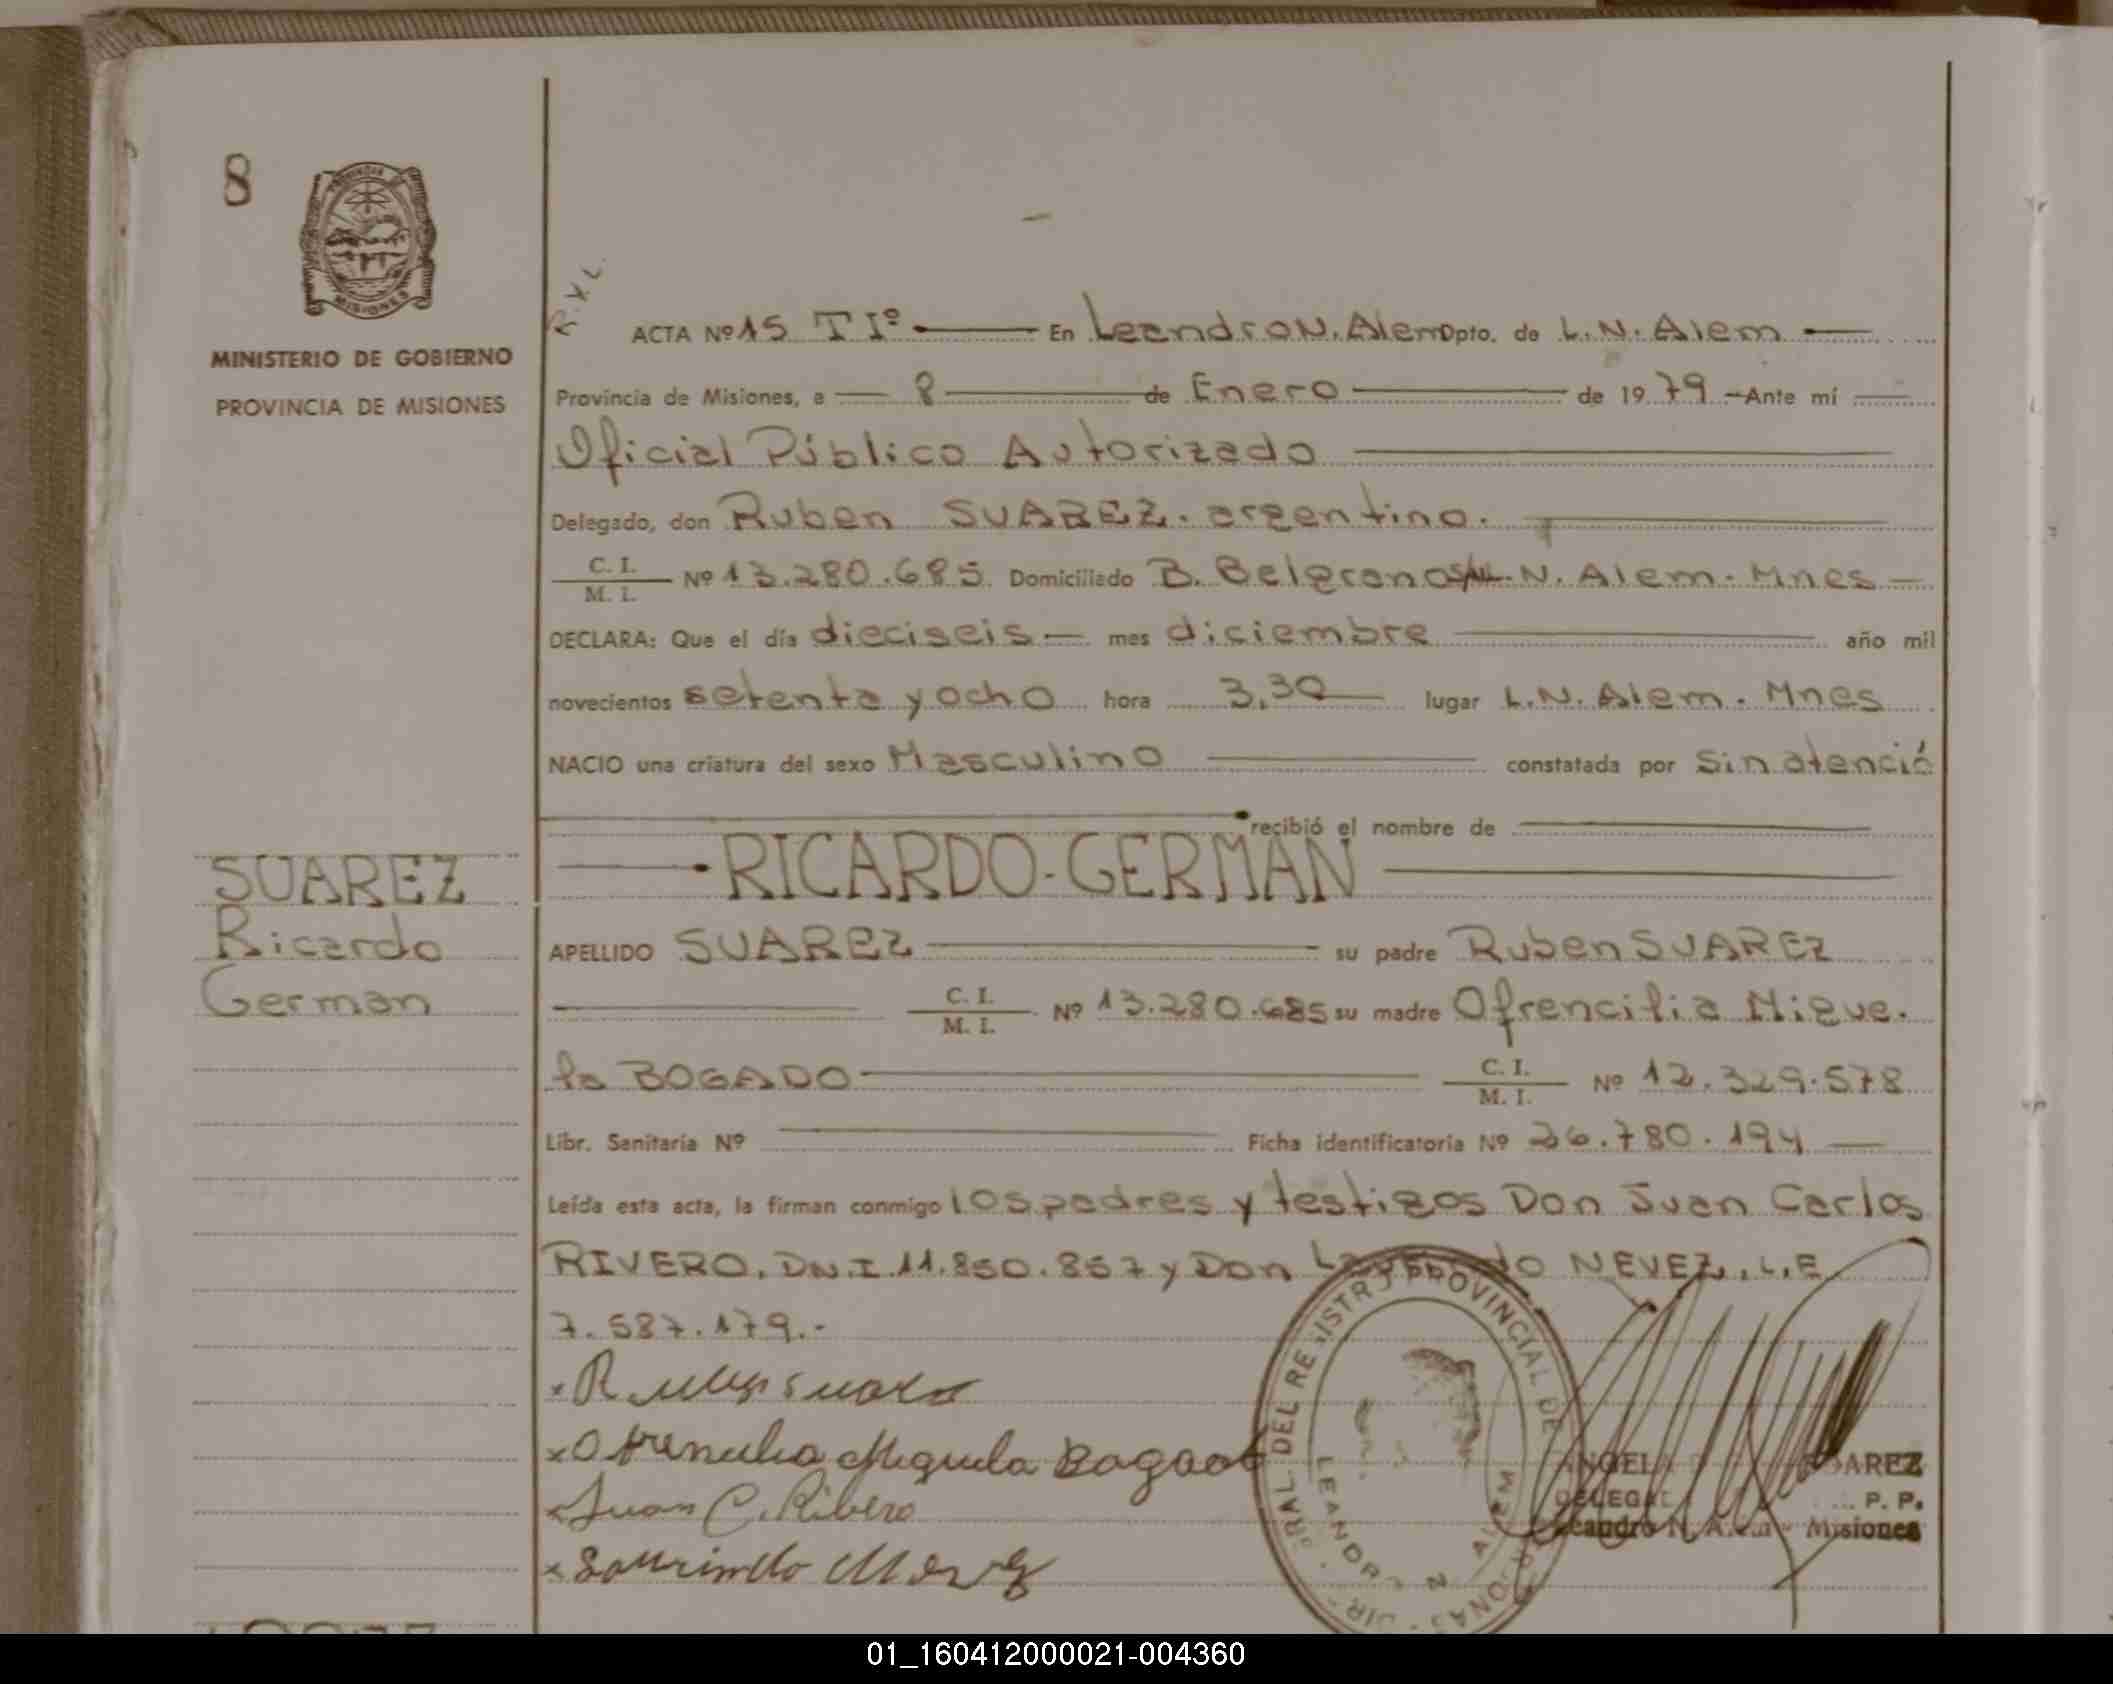 8
MINISTERIO DE GOBIERNO
PROVINCIA DE MISIONES
R.V.L.
ACTA Nº 15 T Iº En Leandro N. Alem Dpto. de L.N. Alem
Provincia de Misiones, a 8 de Enero de 1979 - Ante mí
Oficial Público Autorizado
Delegado, don Ruben SUAREZ. argentino.
C. I. / M. I. Nº 13.280.685 Domiciliado B. Belgrano N. Alem. Mnes
DECLARA: Que el día dieciseis mes diciembre año mil
novecientos setenta y ocho hora 3,30 lugar L.N. Alem. Mnes
NACIO una criatura del sexo Masculino constatada por sin atenció
recibió el nombre de
RICARDO-GERMAN
SUAREZ
Ricardo
German
APELLIDO SUAREZ su padre Ruben SUAREZ
C. I. / M. I. Nº 13.280.685 su madre Ofrencilia Migue.
la BOGADO C. I. / M. I. Nº 12.329.578
Libr. Sanitaria Nº Ficha identificatoria Nº 26.780.194
Leída esta acta, la firman conmigo los padres y testigos Don Juan Carlos
RIVERO. DN.I. 11.850.857 y Don NEVEZ. L.E
7.587.179.-
Miguela Bogado
Juan C. Ribero
DEL REGISTRO PROVINCIAL DE
LEANDRO N. ALEM
P. P.
Leandro N. Alem - Misiones
01_160412000021-004360